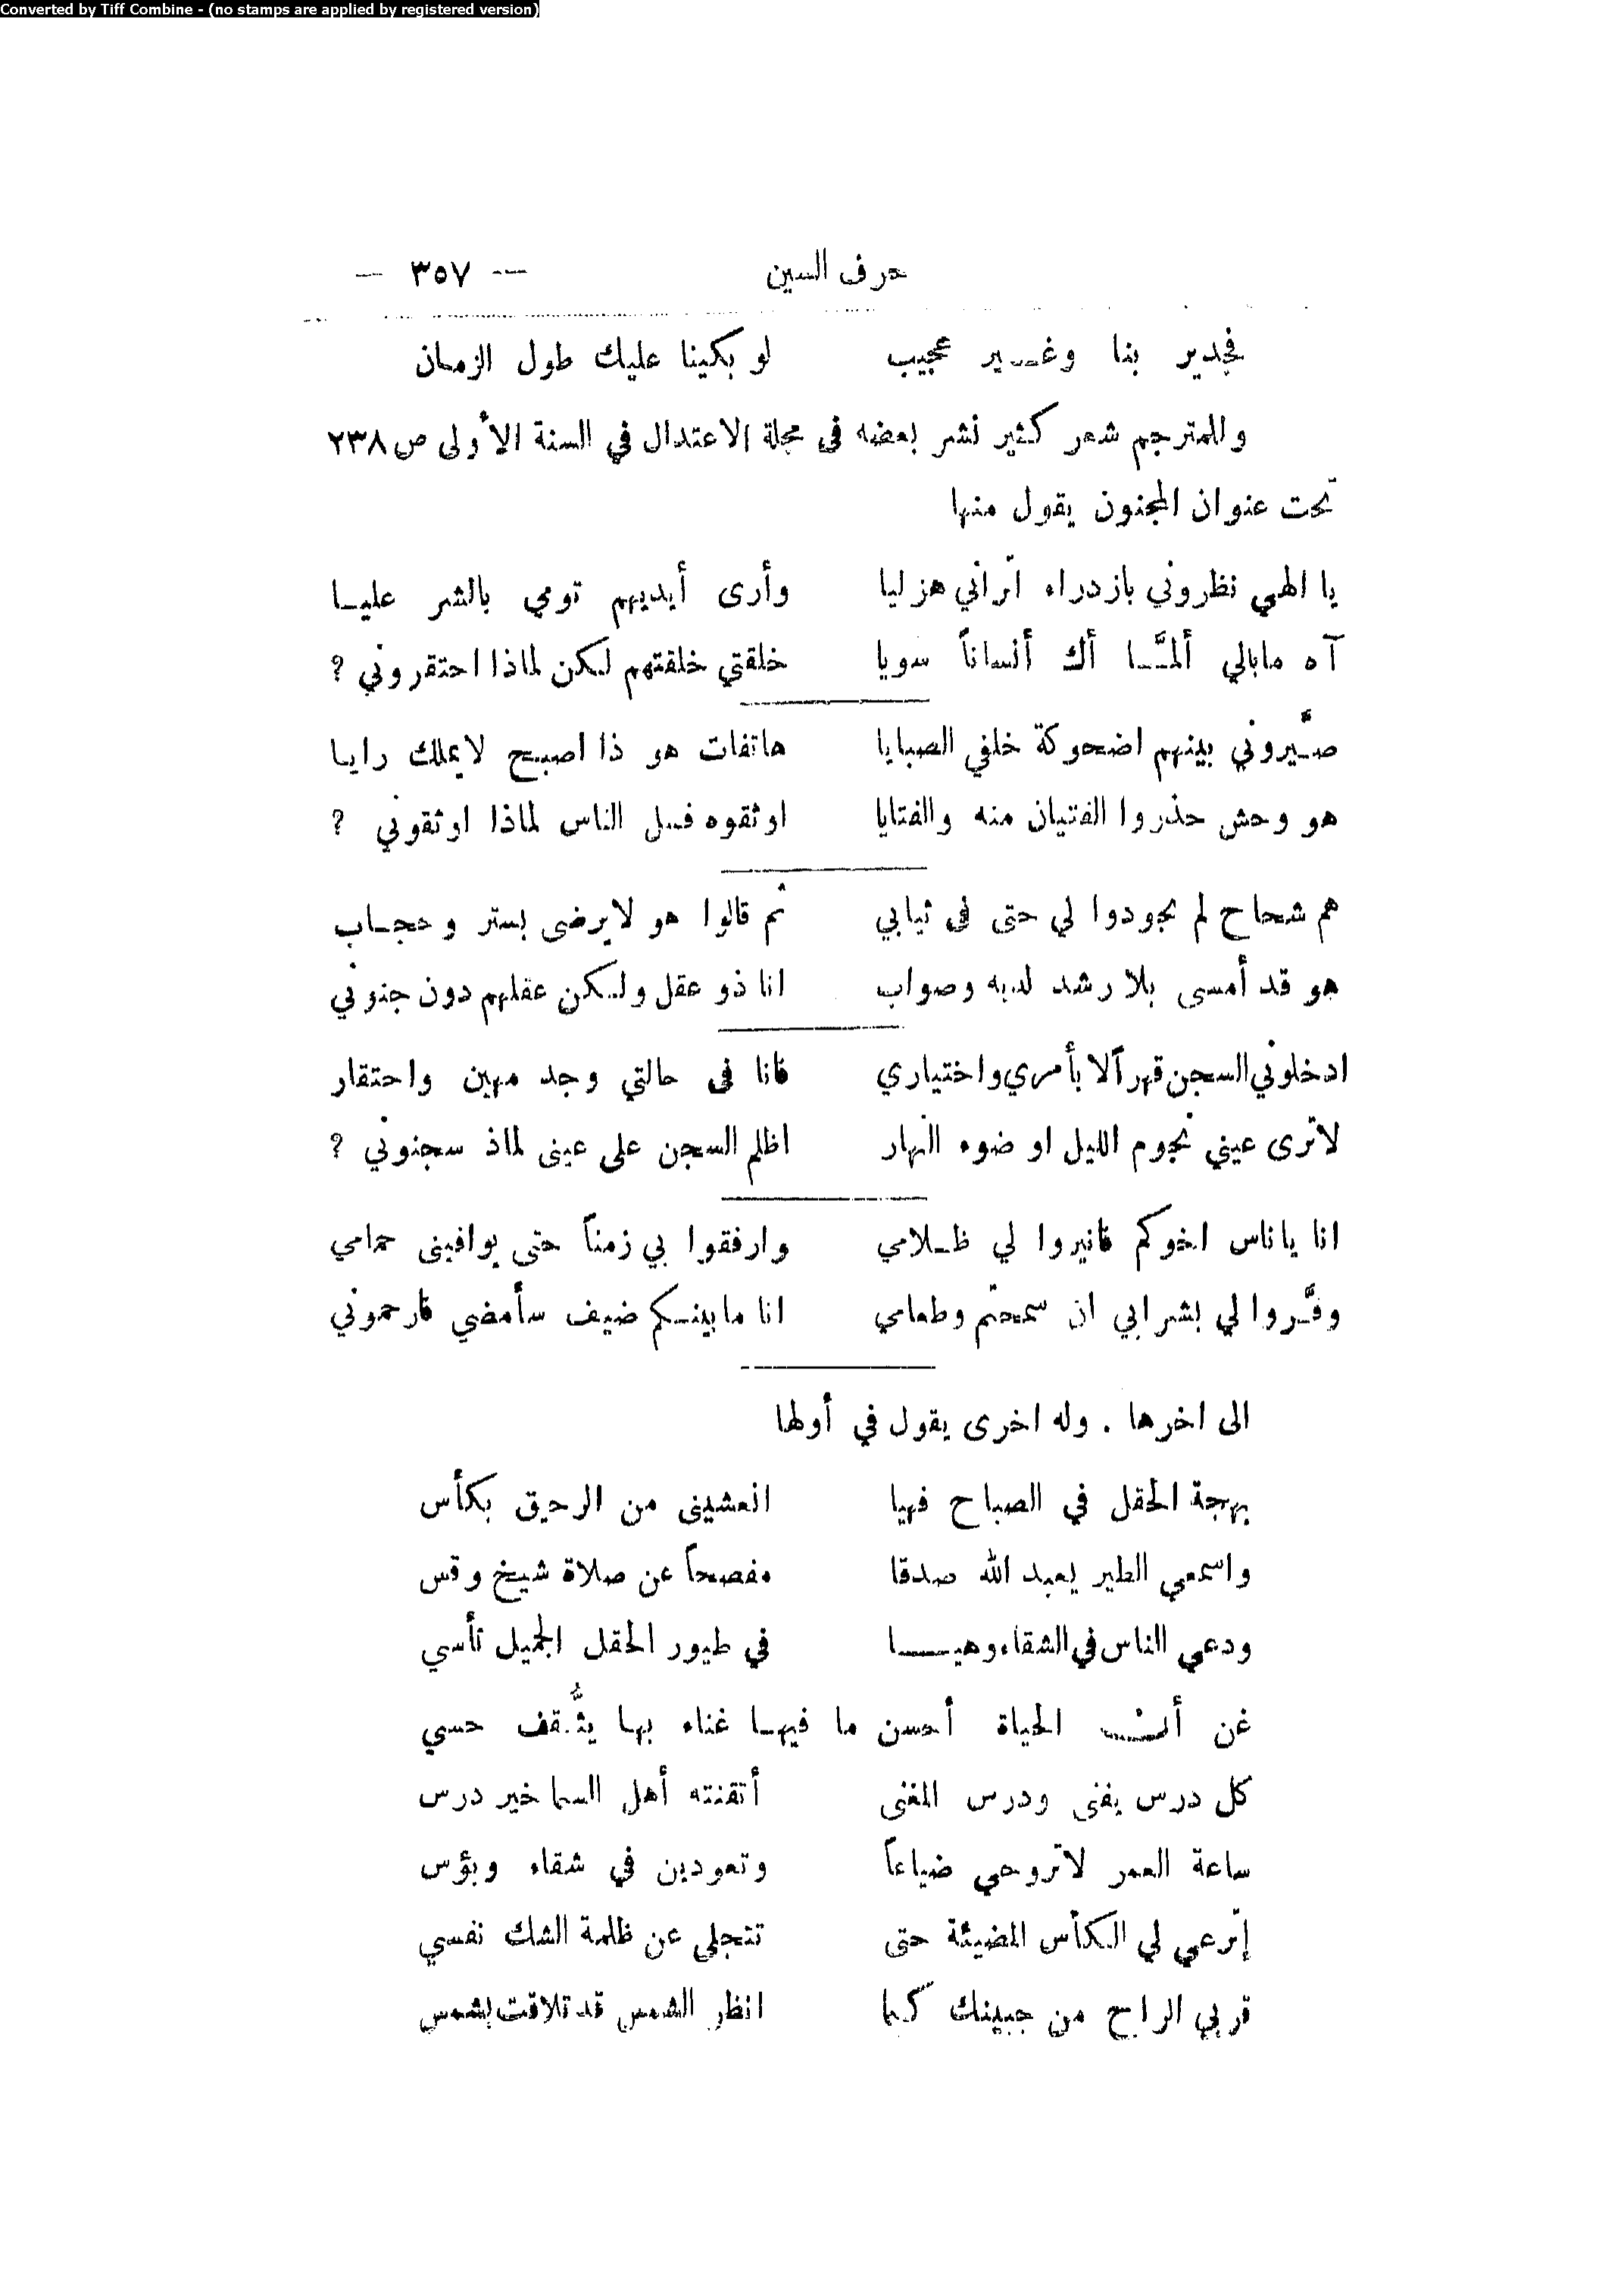 Converted by Tiff Combine - (no stamps are applied by registered version)
حرف السين — ٣٥٧ —
فجدير بنا وغـير عجيب لو بكينا عليك طول الزمان
وللمترجم شعر كثير نشر بعضه في مجلة الاعتدال في السنة الأولى ص ٢٣٨
تحت عنوان المجنون يقول منها
يا الهي نظروني بازدراء اتراني هزليا وأرى أيديهم تومي بالشر عليـا
آه مابالي ألمَّـا أك أنساناً سويا خلقتي خلقتهم لكن لماذا احتقروني ؟
صيَّروني بينهم اضحوكة خلفي الصبايا هاتفات هو ذا اصبح لايملك رايا
هو وحش حذروا الفتيان منه والفتايا اوثقوه فسل الناس لماذا اوثقوني ؟
هم شحاح لم يجودوا لي حتى في ثيابي ثم قالوا هو لايرضى بستر وحجـاب
هو قد أمسى بلا رشد لديه وصواب انا ذو عقل ولكن عقلهم دون جنوني
ادخلوني السجن قهراً لا بأمري واختياري فانا في حالتي وجد مهين واحتقار
لاترى عيني نجوم الليل او ضوء النهار اظلم السجن على عيني لماذ سجنوني ؟
انا ياناس اخوكم فانيروا لي ظـلامي وارفقوا بي زمناً حتى يوافيني حمامي
وفـّروا لي بشرابي ان سمحتم وطعامي انا مابينـكم ضيف سأمضي فارحموني
الى اخرها . وله اخرى يقول في أولها
بهجة الحقل في الصباح فهيا انعشيني من الرحيق بكأس
واسمعي الطير يعبد الله صدقا مفصحاً عن صلاة شيخ وقس
ودعي الناس في الشقاء وهيــا في طيور الحقل الجميل تأسي
غن أنت الحياة أحسن ما فيهـا غناء بها يثُّـقف حسي
كل درس يفنى ودرس المغنى أتقنته أهل السما خير درس
ساعة العمر لاتروحي ضياعاً وتعودين في شقاء وبؤس
إترعي لي الكأس المضيئة حتى تنجلي عن ظلمة الشك نفسي
قربي الراح من جبينك كـما انظر الشمس قد تلاقت بشمس